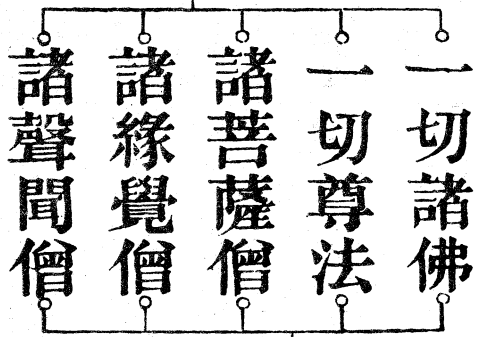 一切諸佛
一切尊法
諸菩薩僧
諸緣覺僧
諸聲聞僧